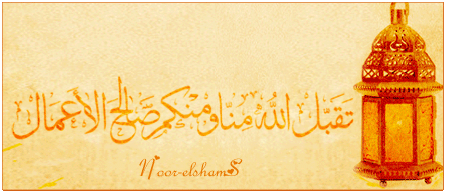 تقبل الله منا ومنكم صالح الأعمال
Noor-elshamS